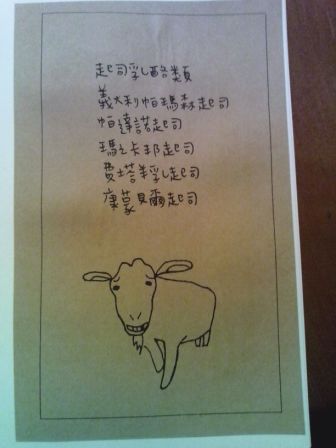 起司乳酪類
義大利帕瑪森起司
帕達諾起司
瑪士卡邦起司
費塔羊乳起司
康蒙貝爾起司